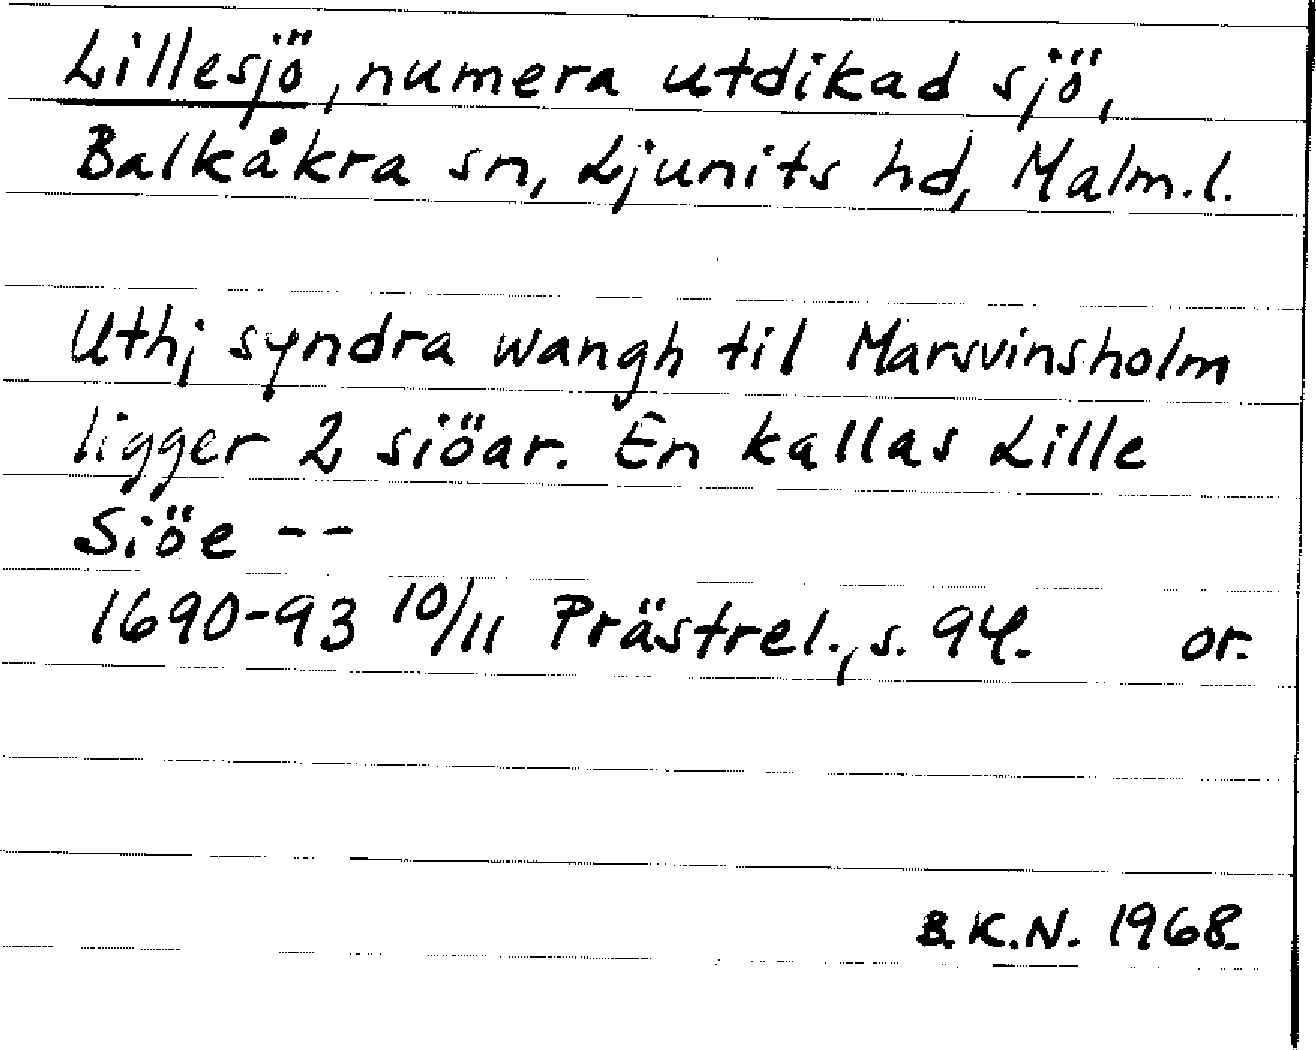 Lillesjö, numera utdikad sjö,
Balkåkra sn, Ljunits hd, Malm.l.
Uthj syndra wangh til Marsvinsholm
ligger 2 siöar. En kallas Lille
Siöe --
1690-93 10/11 Prästrel., s. 94. or.
B.K.N. 1968.